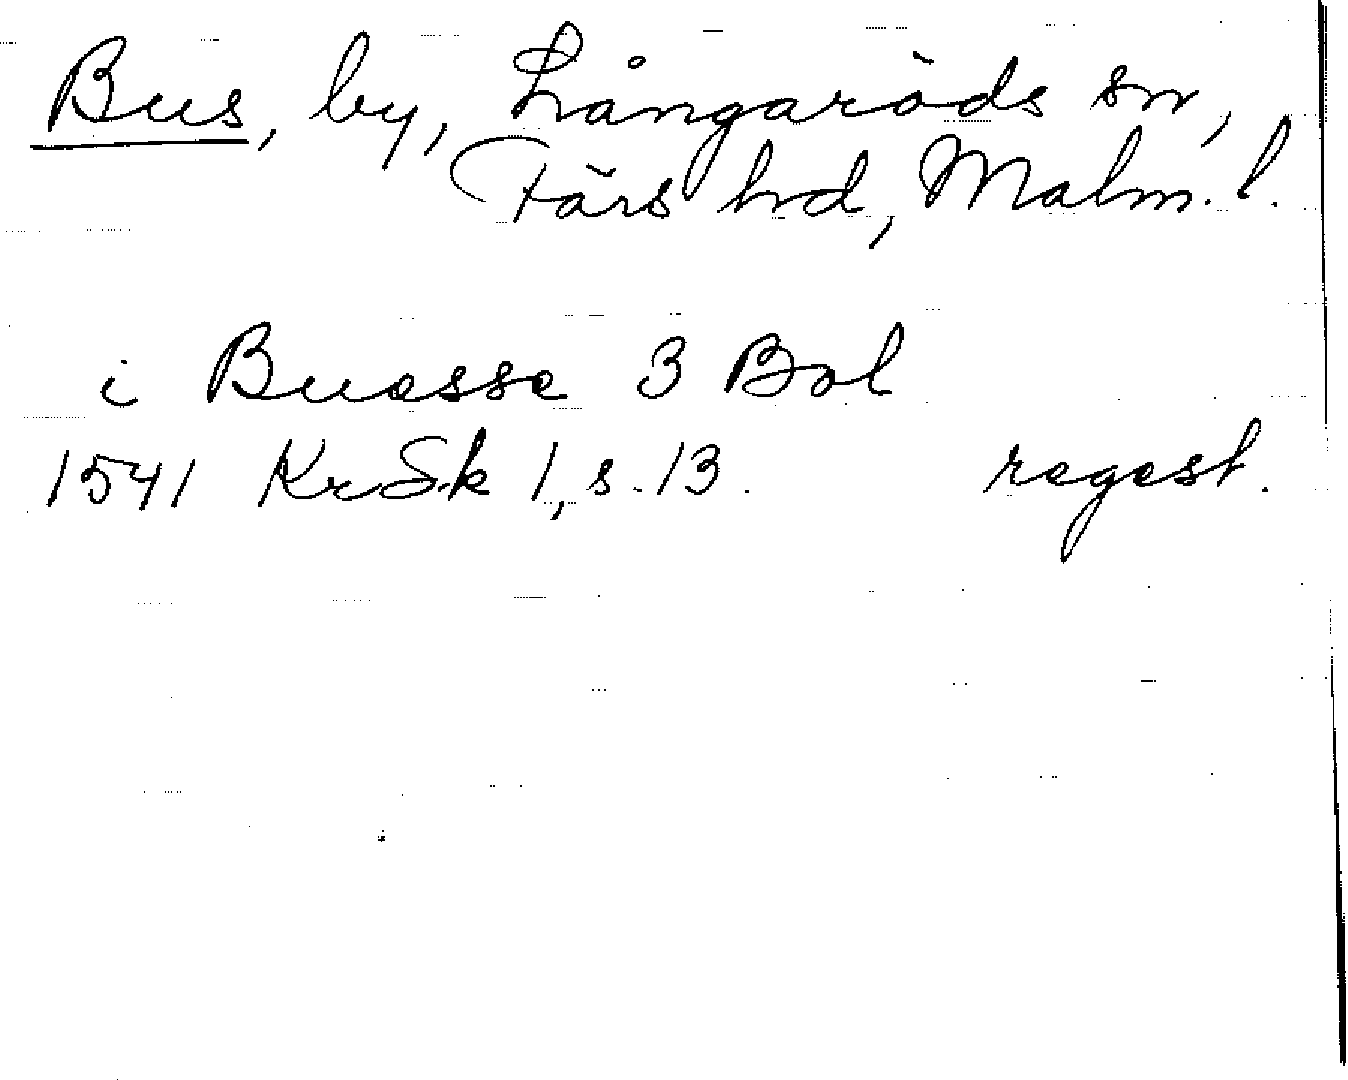 Bus, by, Långaröds sn,
Färs hd, Malm. l.
i Buesse 3 Bol
1541 KrSk 1, s. 13. regest.